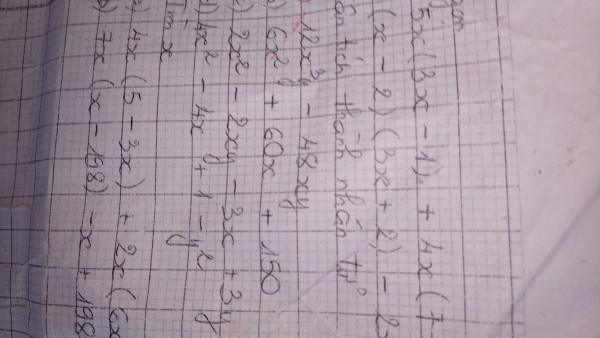 gọn
5x(3x - 1) + 4x(7 -
(x - 2)(3x + 2) - 2
tích thành nhân tử
12x³y - 48xy
6x² + 60x + 150
2x² - 2xy - 3x + 3y
4x² - 4x + 1 - y²
Tìm x
4x(5 - 3x) + 2x(6x
7x(x - 198) - x + 198